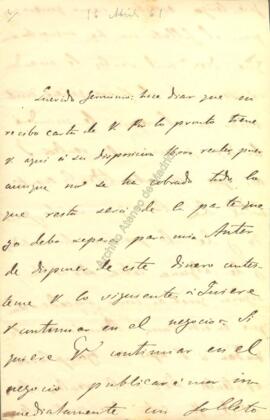 16 Abril 61
Querido Jeronimo: hace dias que no
recibo carta de V. Por lo pronto tiene
V. aqui á su disposicion reales pues
aunque no se ha cobrado todo lo
que resta será de la parte que
yo debo separar para mi. Antes
de disponer de este dinero contes-
teme V. lo siguiente: ¿Quiere
V. continuar en el negocio? Si
quiere V. continuar en el
negocio publicaré in-
mediatamente un folleto
Archivo Ateneo de Madrid